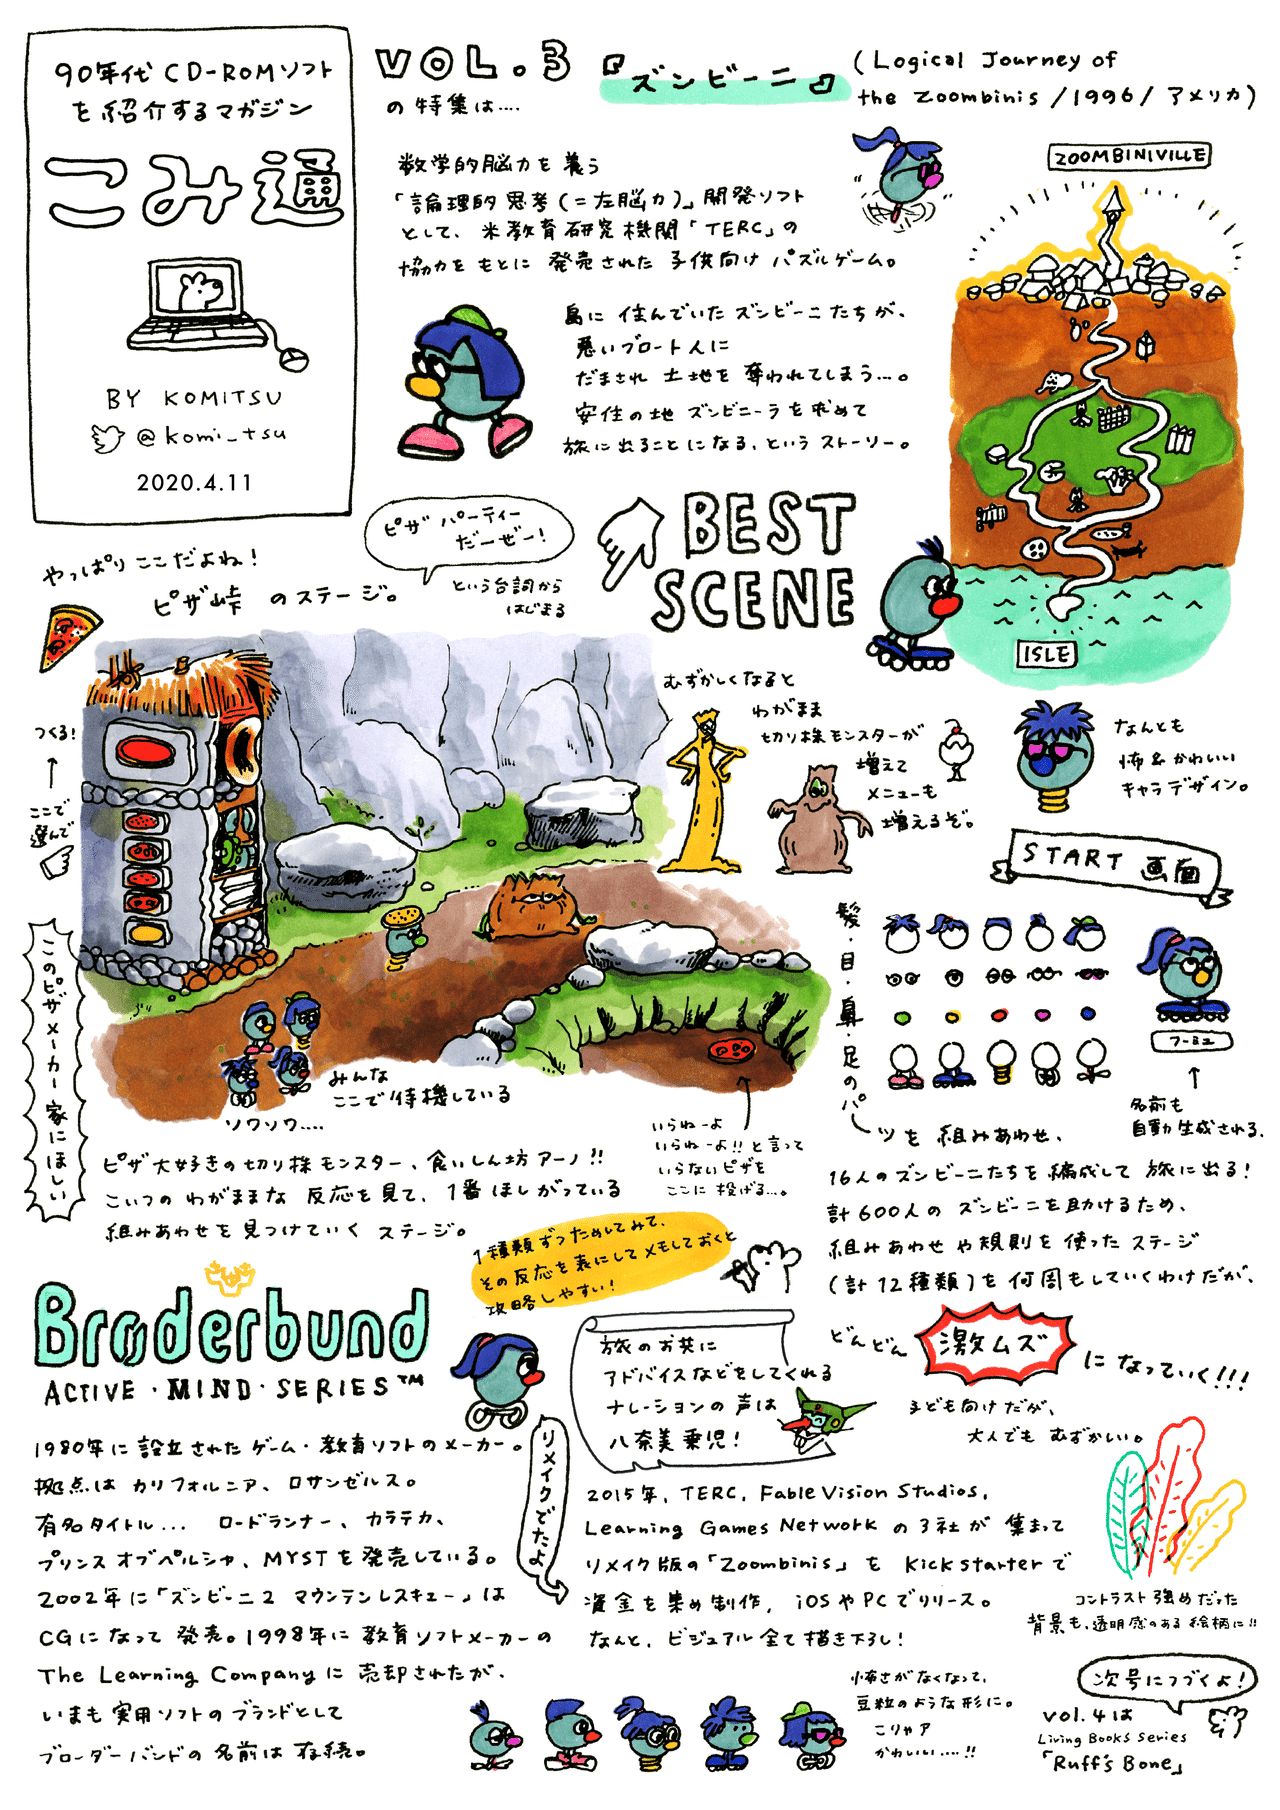 90年代 CD-ROMソフト
を紹介するマガジン
こみ通
BY KOMITSU
@komi_tsu
2020.4.11
VOL.3
の特集は....
『ズンビーニ』
(Logical Journey of
the Zoombinis/1996/アメリカ)
数学的脳力を養う
「論理的思考(=左脳力)」開発ソフト
として、米教育研究機関「TERC」の
協力をもとに発売された子供向けパズルゲーム。
島に住んでいたズンビーニたちが、
悪いブロート人に
だまされ土地を奪われてしまう...。
安住の地ズンビニーラを求めて
旅に出ることになる、というストーリー。
ZOOMBINIVILLE
ISLE
BEST
SCENE
やっぱりここだよね!
ピザ峠のステージ。
ピザパーティー
だーぜー!
という台詞から
はじまる
つくる!
ここで
選んで
このピザメーカー家にほしい
むずかしくなると
わがまま
切り株モンスターが
増えて
メニューも
増えるぞ。
みんな
ここで待機している
ソワソワ....
いらねーよ
いらねーよ!!と言って
いらないピザを
ここに投げる...。
ピザ大好きの切り株モンスター、食いしん坊アーノ!!
こいつのわがままな反応を見て、1番ほしがっている
組みあわせを見つけていくステージ。
1種類ずつためしてみて、
その反応を表にしてメモしておくと
攻略しやすい!
なんとも
怖&かわいい
キャラデザイン。
START 画面
髪・目・鼻・足のパ
ーツを組みあわせ、
フーミュ
名前も
自動生成される.
16人のズンビーニたちを編成して旅に出る!
計600人のズンビーニを助けるため、
組みあわせや規則を使ったステージ
(計12種類)を何周もしていくわけだが、
どんどん
激ムズ
になっていく!!!
子ども向けだが、
大人でもむずかしい。
Brøderbund
ACTIVE・MIND・SERIES™
1980年に設立されたゲーム・教育ソフトのメーカー。
拠点はカリフォルニア、ロサンゼルス。
有名タイトル... ロードランナー、カラテカ、
プリンスオブペルシャ、MYSTを発売している。
2002年に「ズンビーニ2 マウンテンレスキュー」は
CGになって発売。1998年に教育ソフトメーカーの
The Learning Companyに売却されたが、
いまも実用ソフトのブランドとして
ブローダーバンドの名前は存続。
旅のお共に
アドバイスなどをしてくれる
ナレーションの声は
八奈美乗児!
リメイクでたよ
2015年, TERC, FableVision Studios,
Learning Games Networkの3社が集まって
リメイク版の「Zoombinis」をKickstarterで
資金を集め制作, iOSやPCでリリース。
なんと、ビジュアル全て描き下ろし!
コントラスト強めだった
背景も、透明感のある絵柄に!!
怖さがなくなって、
豆粒のような形に。
こりゃア
かわいい....!!
次号につづくよ!
vol.4は
Living Books Series
「Ruff's Bone」